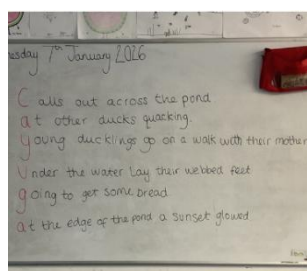 esday 7th January 2026
Calls out across the pond
at other ducks quacking.
young ducklings go on a walk with their mother
under the water lay their webbed feet
going to get some bread
at the edge of the pond a sunset glowed